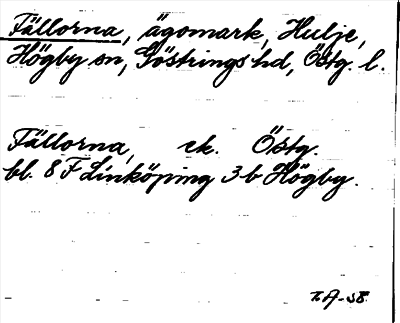 Fällorna, ägomark, Hulje,
Högby sn, Göstrings hd, Östg. l.
Fällorna, ek. Östg.
bl. 8 F Linköping 3 b Högby.